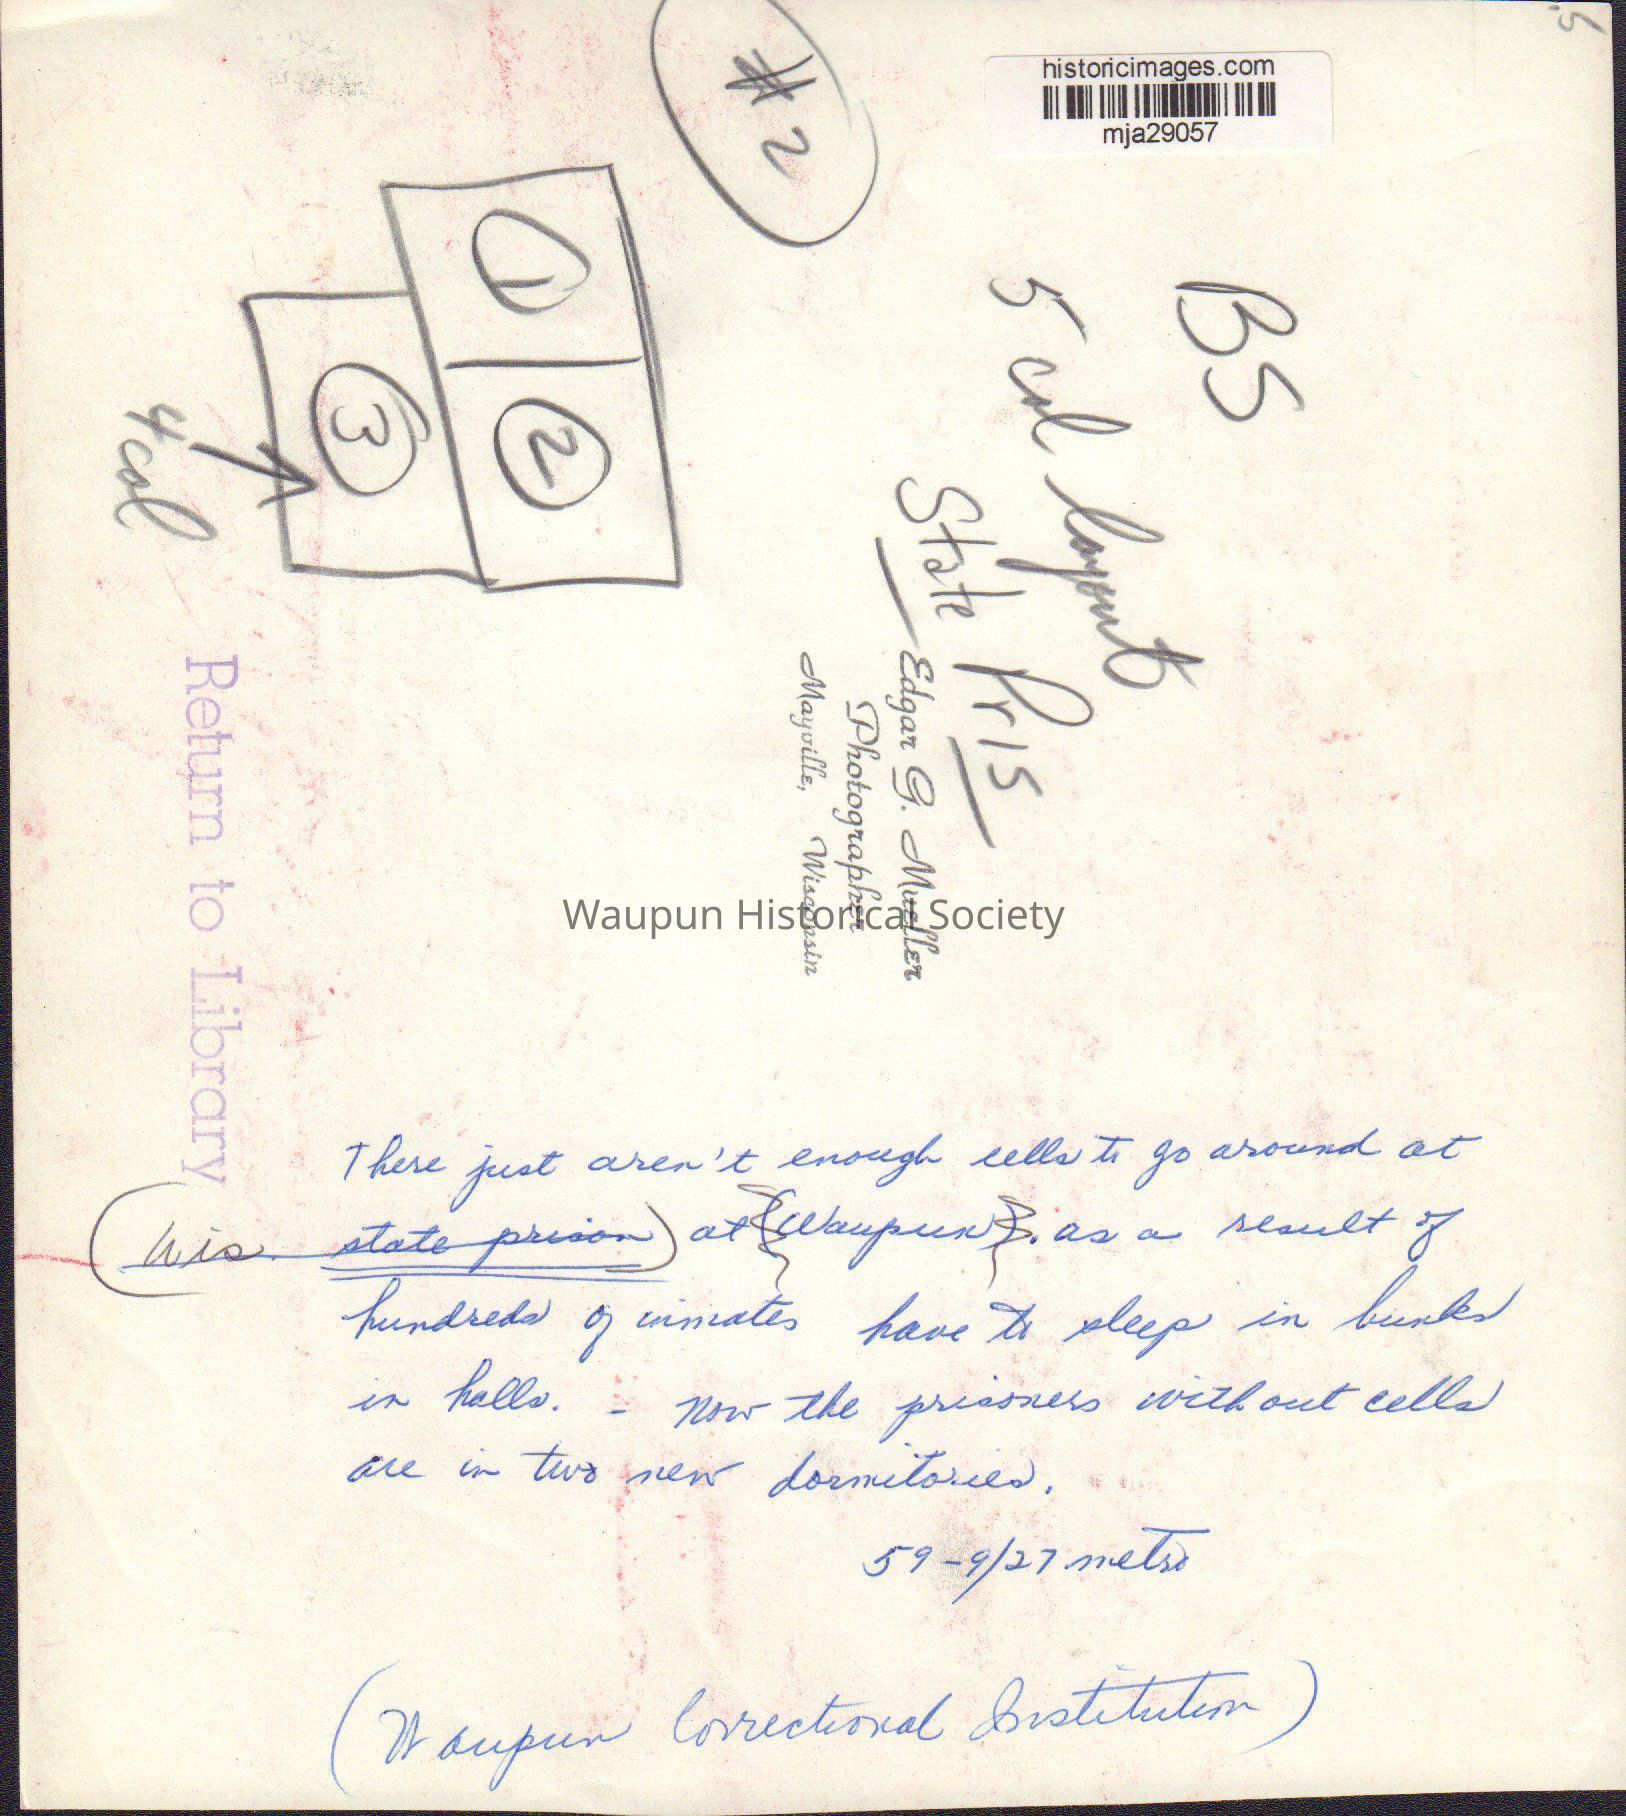 historicimages.com
mja29057
#2
BS
5 col layout
State Pris
1
2
3
4 col
Edgar G. Mueller
Photographer
Mayville, Wisconsin
Return to Library
Waupun Historical Society
There just aren't enough cells to go around at
Wis. state prison) at {Waupun}. as a result of
hundreds of inmates have to sleep in bunks
in halls. - now the prisoners without cells
are in two new dormitories.
59-9/27 metro
(Waupun Correctional Institution)